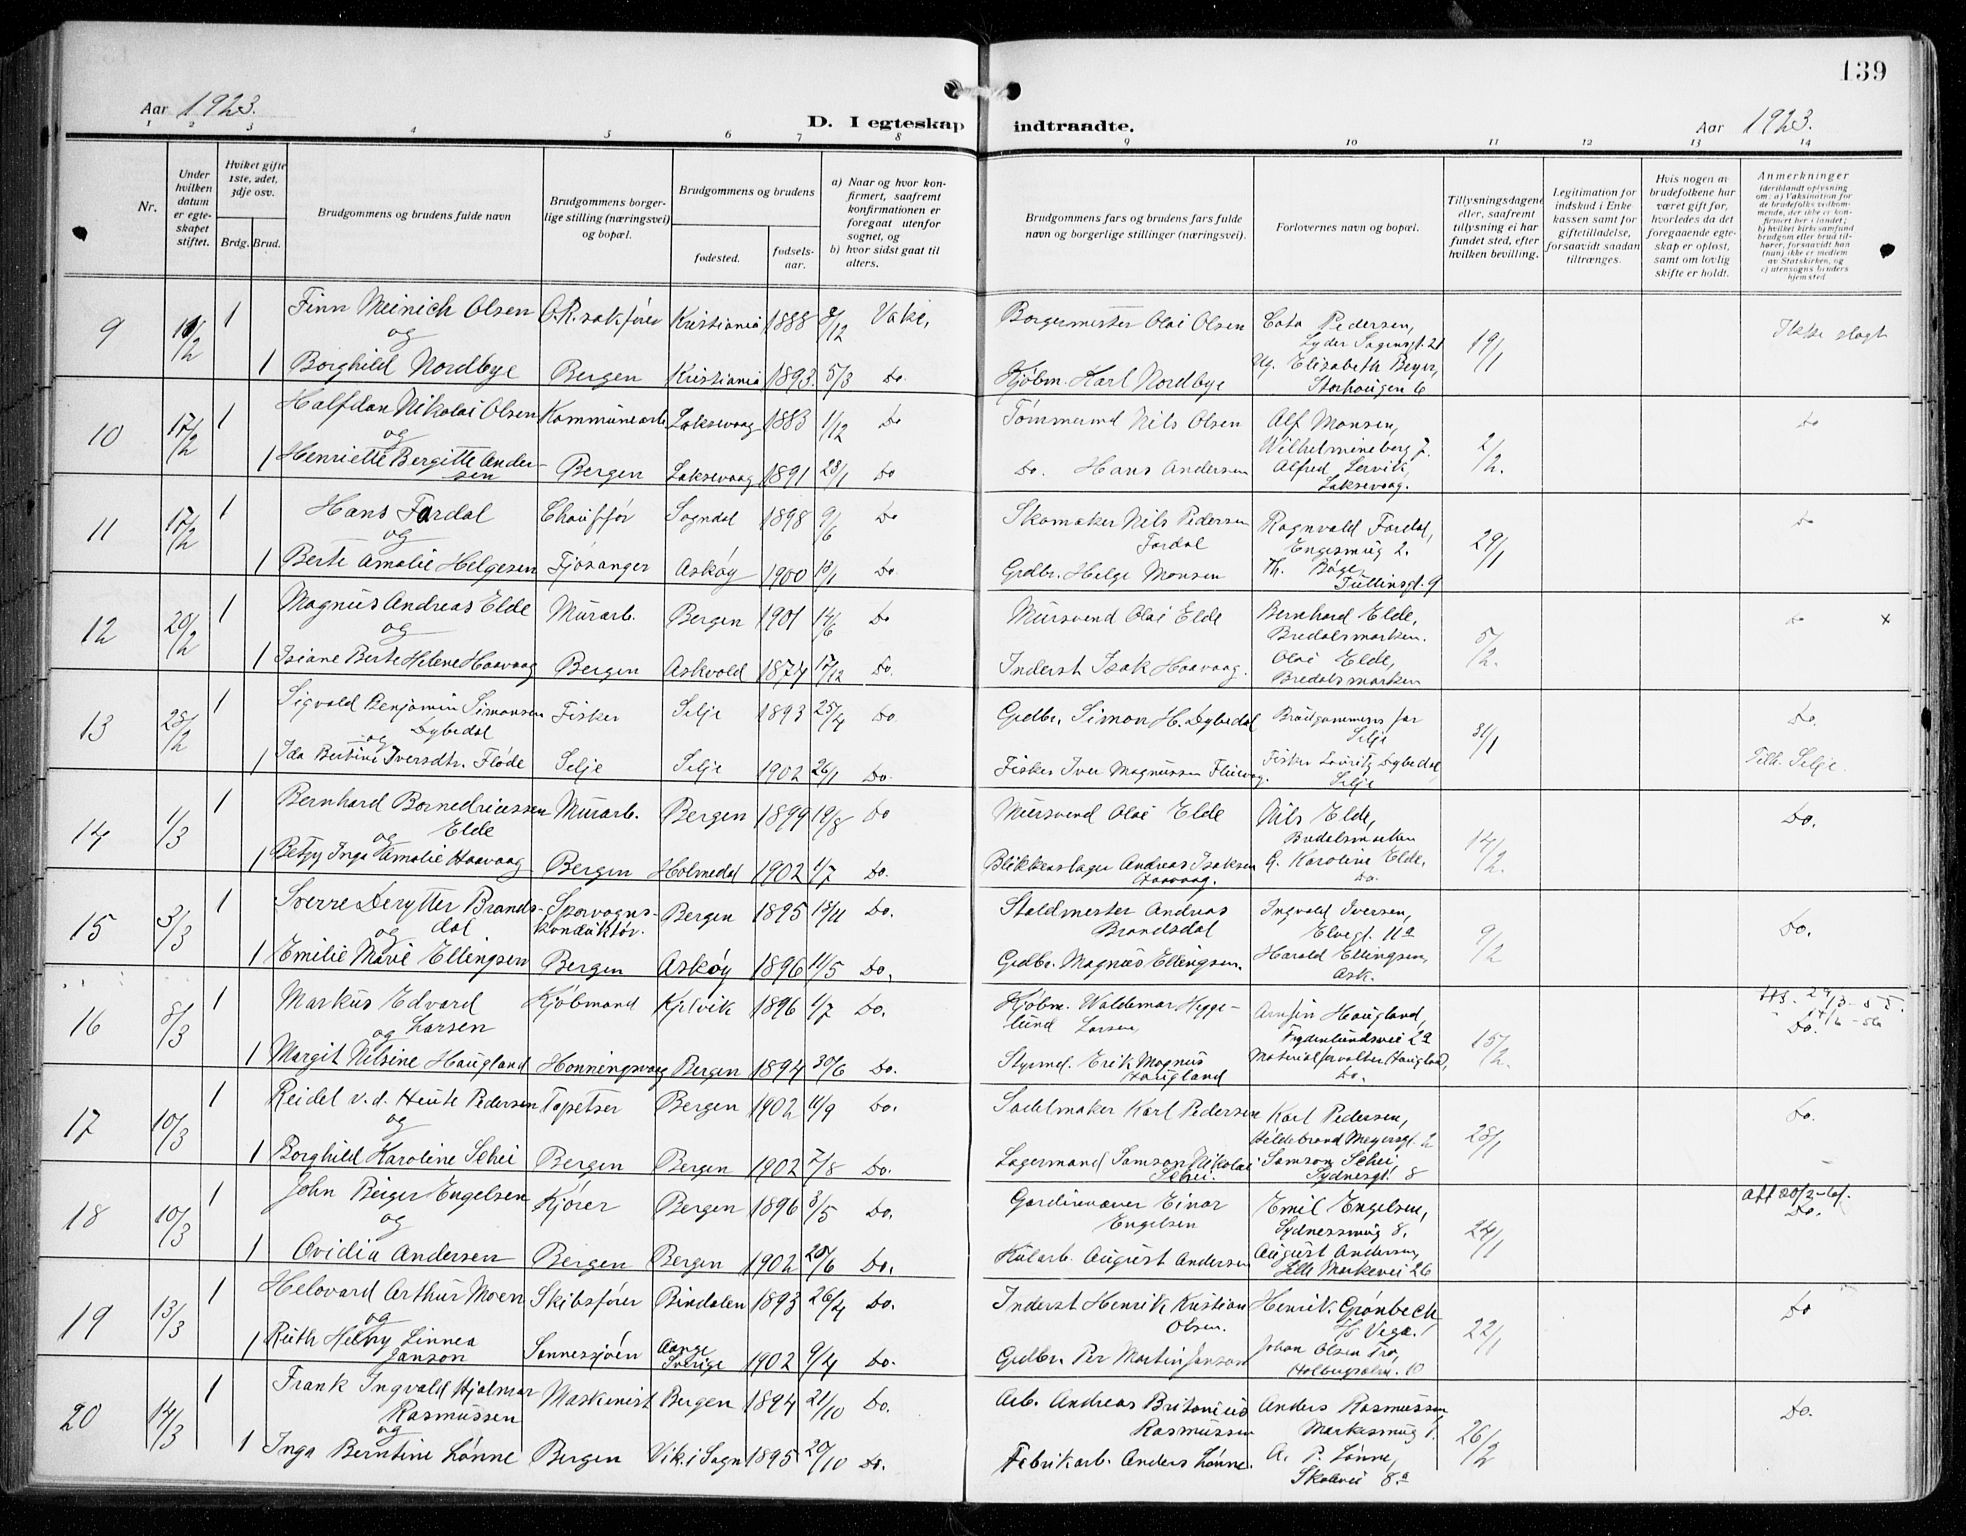 139
Aar 1923.
D. I egteskap indtraadte.
Aar 1923.
1 2 3 4 5 6 7 8 9 10 11 12 13 14
Nr.
Under hvilken datum er egteskapet stiftet.
Hvilket gifte 1ste, 2det, 3dje osv.
Brdg. Brud.
Brudgommens og brudens fulde navn
Brudgommens borgerlige stilling (næringsvei) og bopæl.
Brudgommens og brudens
fødested.
fødselsaar.
a) Naar og hvor konfirmert, saafremt konfirmationen er foregaat utenfor sognet, og
b) hvor sidst gaat til alters.
Brudgommens fars og brudens fars fulde navn og borgerlige stillinger (næringsvei).
Forlovernes navn og bopæl.
Tillysningsdagene eller, saafremt tillysning ei har fundet sted, efter hvilken bevilling.
Legitimation for indskud i Enkekassen samt for giftetilladelse, forsaavidt saadan tiltrænges.
Hvis nogen av brudefolkene har været gift før, hvorledes da det foregaaende egteskap er opløst, samt om lovlig skifte er holdt.
Anmerkninger
(deriblandt oplysning om: a) Vaksination for de brudefolks vedkommende, der ikke er konfirmert her i landet; b) hvilket kirkesamfund brudgom eller brud tilhører, forsaavidt han (hun) ikke er medlem av Statskirken, og c) utensogns bruders hjemsted.
9 10/2 1 Finn Meinich Olsen O.R.sakfører Kristiania 1888 8/12 Vake. Borgermester Olai Olsen Cato Pedersen, Lyder Sagensgt. 21 19/1 Ikke slegt
og
1 Borghild Nordbye Bergen Kristiania 1893. 5/3 Do. Kjøbm. Karl Nordbye Elisabeth Beyer, Storhaugen 6
10 17/2 1 Halfdan Nikolai Olsen Kommunearb. Laksevaag 1883 1/12 Do Tømmermd Nils Olsen Alf Monsen, Wilhelmineberg 7. 2/2. Do
og
1 Henriette Bergitte Andersen Bergen Laksevaag 1891 28/1 Do Do. Hans Andersen Alfred Lervik, Laksevaag.
11 17/2 1 Hans Fardal Chauffør Sogndal 1898 9/6 Do Skomaker Nils Pedersen Fardal Ragnvald Fardal, Engesmug 2. 29/1 Do
og
1 Berte Amalie Helgesen Fjøsanger Askøy 1900 13/1 Do. Grdbr. Helge Monsen Th. Bøge, Tullinsgt. 9
12 20/2 1 Magnus Andreas Elde Murarb. Bergen 1901 14/6 Do Mursvend Olai Elde Bernhard Elde, Bredalsmarken. 5/2. Do x
og
1 Isiane Berte Helene Haavaag Bergen Askvold 1874 17/12 Do. Inderst Isak Haavaag. Olai Elde, Bredalsmarken
13 28/2 1 Sigvald Benjamin Simonsen Dybedal Fisker Selje 1893 25/4 Do. Grdbr. Simon H. Dybedal Brudgommens far Selje 31/1 Do.
og
1 Ida Bertine Iversdtr. Fløde Selje Selje 1902 26/1 Do. Fisker Iver Magnussen Fisker Lauritz Dybedal, Selje Tilh. Selje.
14 1/3 1 Bernhard Bornedriassen Elde Murarb. Bergen 1899 19/8 Do Mursvend Olai Elde Nils Elde, Bredalsmarken 14/2. Do.
og
1 Betzy Inga Amalie Haavaag Bergen Holmedal 1902 1/7 Do. Blikkenslager Andreas Isaksen Haavaag. G. Karoline Elde, Do.
15 3/3 1 Sverre Derytter Brandsdal Sporvognskonduktør. Bergen 1895 18/11 Do. Staldmester Andreas Brandsdal Ingvald Iversen, Elvegt. 11a 9/2 Do.
og
1 Emilie Marie Ellingsen Bergen Askøy 1896 11/5 Do. Grdbr. Magnus Ellingsen. Harald Ellingsen, Ask.
16 8/3 1 Markus Edvard Larsen Kjøbmand Kjelvik 1896 1/7 Do. Kjøbm. Waldemar Heggelund Larsen Arnfin Haugland, Frydenlundsvei 2a 15/2. Do.
og
1 Margit Nilsine Haugland Honningsvaag Bergen 1894 30/6 Do. Styrmd. Erik Magnus Haugland Materialforvalter Haugland, Do.
17 10/3 1 Reidel v. d. Heute Pedersen Tapetser Bergen 1902 11/9 Do. Sadelmaker Karl Pedersen Karl Pedersen, Hildebrand Meyersgt. 2 28/1 Do.
og
1 Borghild Karoline Schei Bergen Bergen 1902 7/8 Do. Lagermand Samson Nikolai Schei. Samson Schei Sydnesgt. 8
18 10/3 1 John Birger Engelsen Kjører Bergen 1896 3/5 Do. Gardinvæver Einar Engelsen Emil Engelsen, Sydnessmug 8, 24/1 Att 20/2-61. Do.
og
1 Ovidia Andersen Bergen Bergen 1902 20/6 Do. Kularb. August Andersen August Andersen, Lille Markevei 26
19 13/3 1 Helovard Arthur Moen Skibsfører Bindalen 1893 26/4 Do. Inderst Henrik Kristian Olsen. Henrik Grønbech D/S Vega. 22/1 Do
og
1 Ruth Helny Linnea Janson Sannessjøen Aange Sverige 1902 9/4 Do. Grdbr. Per Martin Janson Johan Olsen Trø, Holbergsalm. 10
20 14/3 1 Frank Ingvald Hjalmar Rasmussen Maskinist Bergen 1894 21/10 Do. Arb. Andreas Britanius Rasmussen Anders Rasmussen, Markesmug 1. 26/2 Do.
og
1 Inga Berntine Lønne Bergen Vik i Sogn 1895 20/10 Do. Febrikarb. Anders Lønne. A. P. Lønne, Skolevei 8a